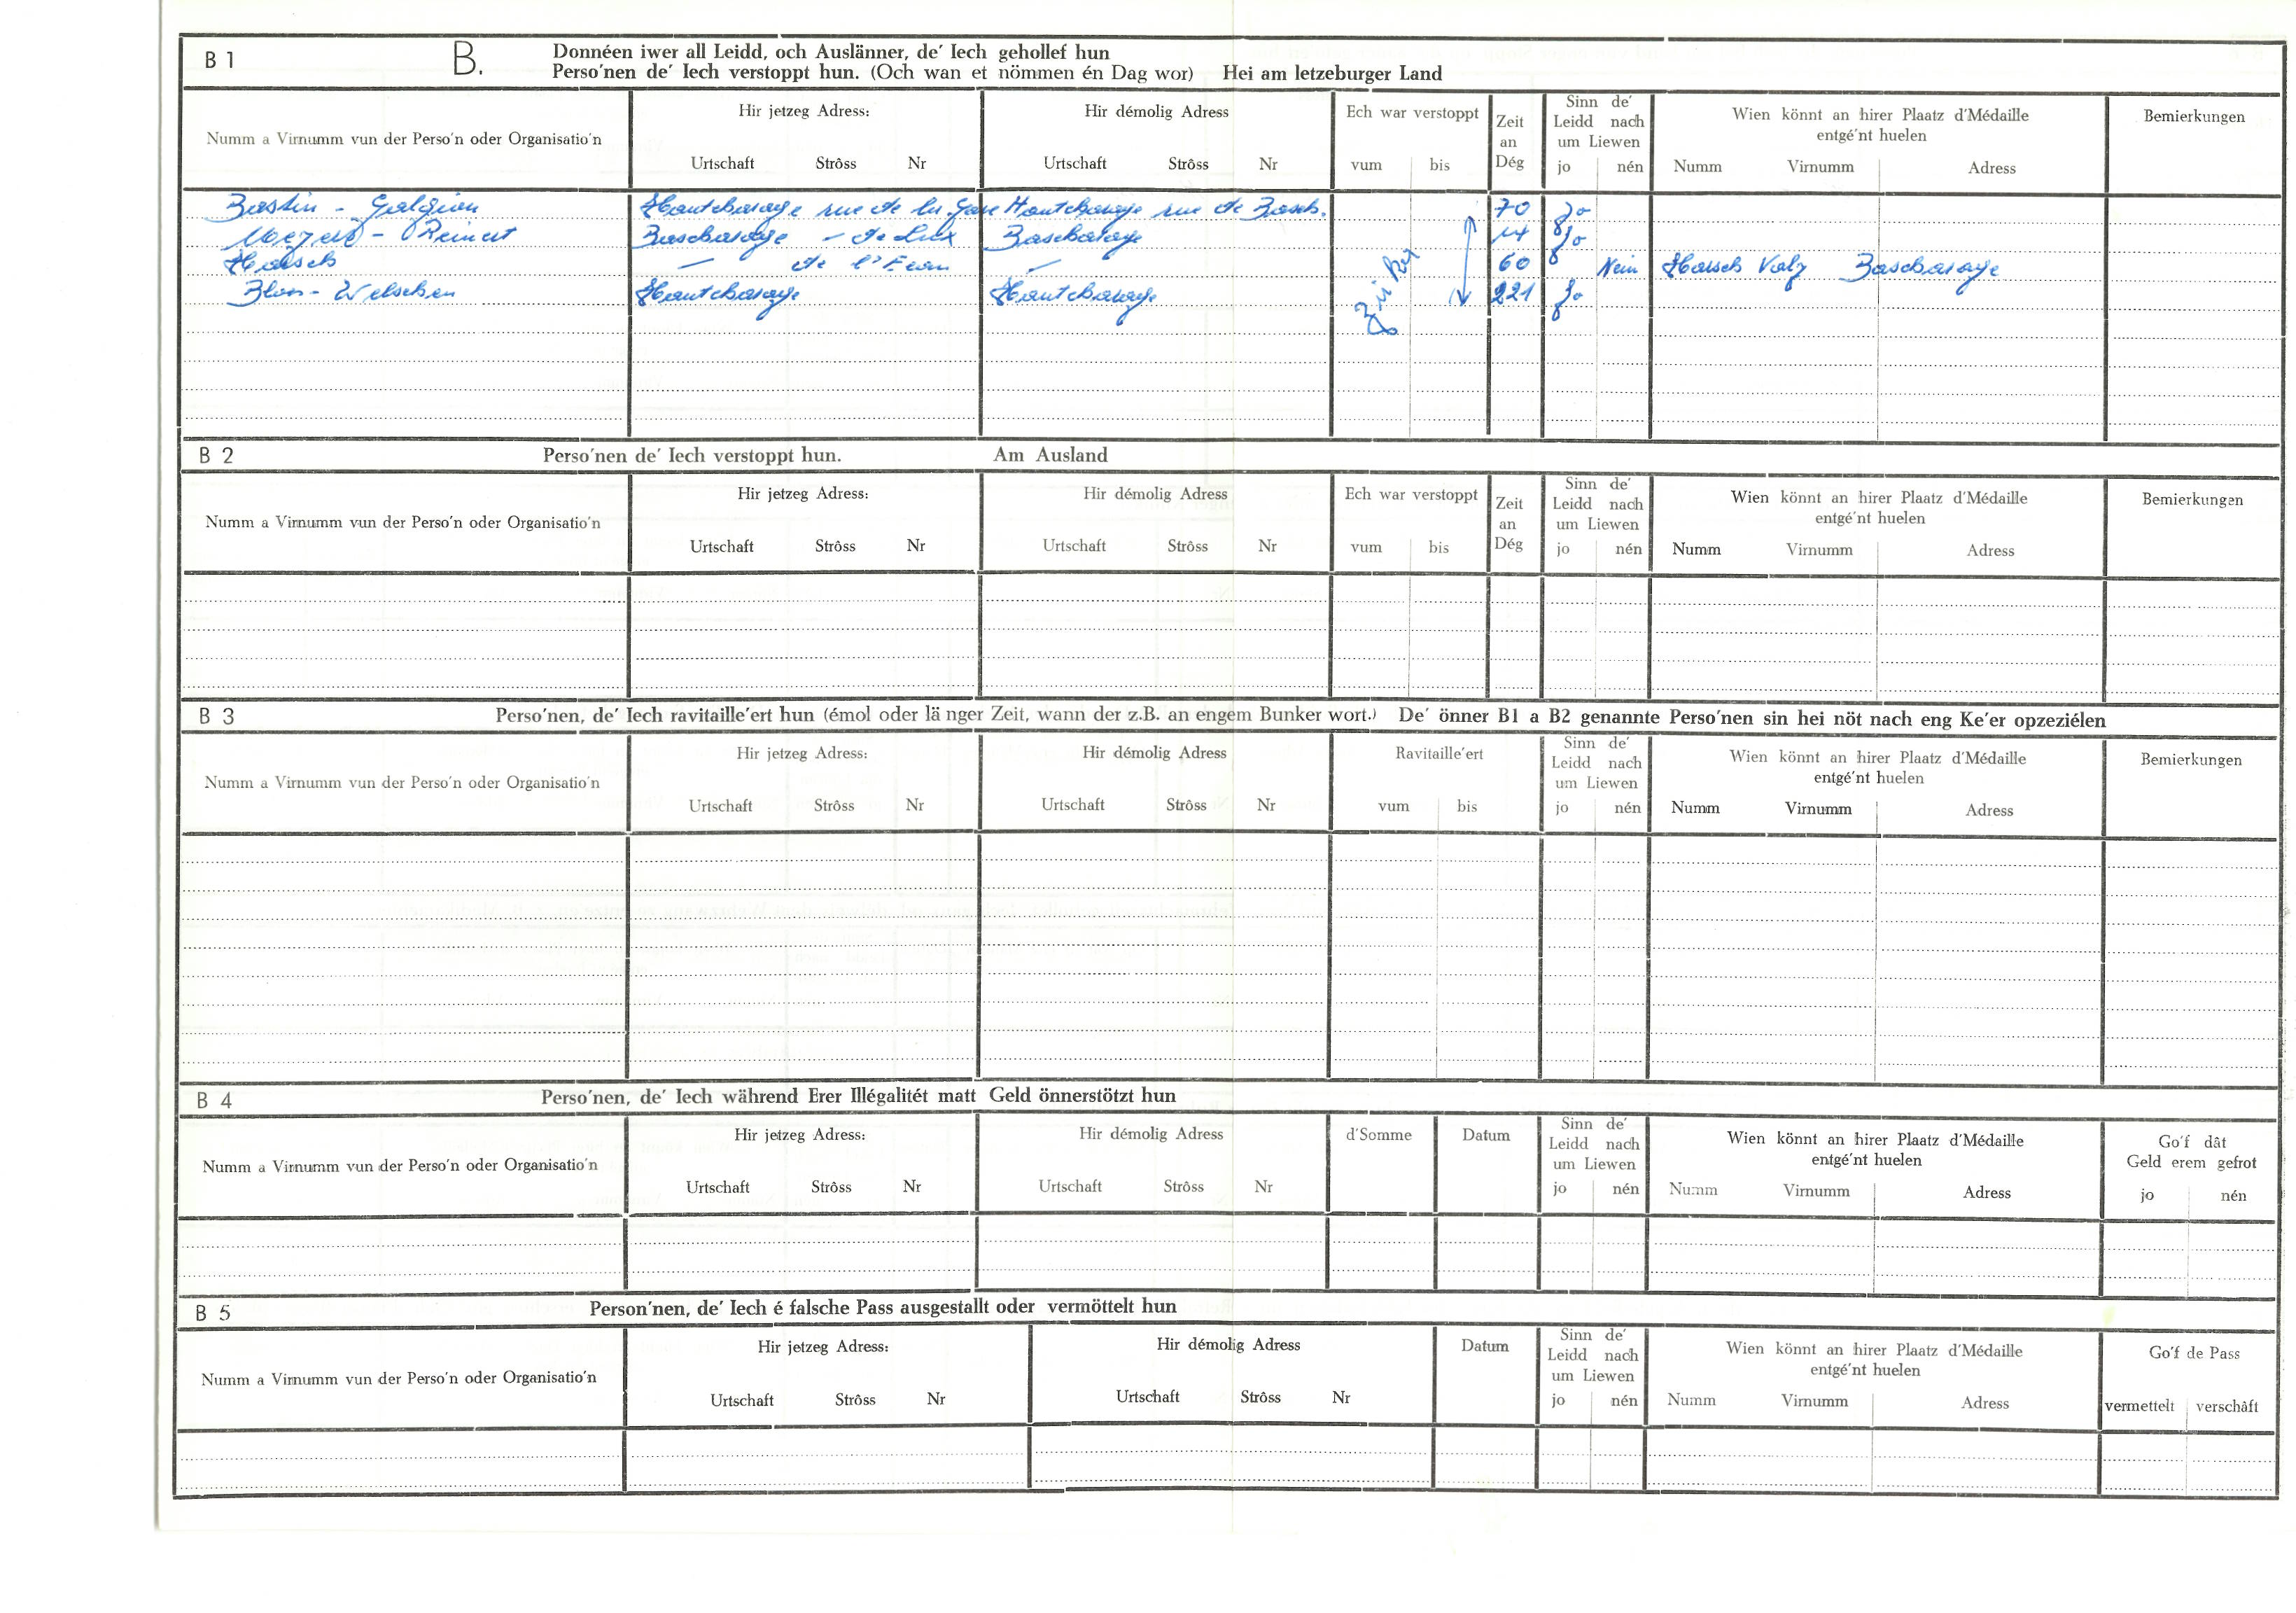 B 1 B. Donnéen iwer all Leidd, och Auslänner, de′ Iech gehollef hun
Perso′nen de′ Iech verstoppt hun. (Och wan et nömmen én Dag wor) Hei am letzeburger Land
Numm a Virnumm vun der Perso′n oder Organisatio′n
Hir jetzeg Adress:
Urtschaft Strôss Nr
Hir démolig Adress
Urtschaft Strôss Nr
Ech war verstoppt
vum bis
Zeit
an
Dég
Sinn de′
Leidd nach
um Liewen
jo nén
Wien könnt an hirer Plaatz d′Médaille
entgé′nt huelen
Numm Virnumm Adress
Bemierkungen
Bastin - Hautcharage rue de la Gare Hautcharage rue de Basch. 70 Jo
- Reinert Bascharage - de Lux Bascharage 14 Jo
Harsch — de l'Eau — 60 Nein Harsch Bascharage
- Welschen Hautcharage Hautcharage 221 Jo
B 2 Perso′nen de′ Iech verstoppt hun. Am Ausland
Numm a Virnumm vun der Perso′n oder Organisatio′n
Hir jetzeg Adress:
Urtschaft Strôss Nr
Hir démolig Adress
Urtschaft Strôss Nr
Ech war verstoppt
vum bis
Zeit
an
Dég
Sinn de′
Leidd nach
um Liewen
jo nén
Wien könnt an hirer Plaatz d′Médaille
entgé′nt huelen
Numm Virnumm Adress
Bemierkungen
B 3 Perso′nen, de′ Iech ravitaille′ert hun (émol oder lä nger Zeit, wann der z.B. an engem Bunker wort.) De′ önner B1 a B2 genannte Perso′nen sin hei nöt nach eng Ke′er opzeziélen
Numm a Virnumm vun der Perso′n oder Organisatio′n
Hir jetzeg Adress:
Urtschaft Strôss Nr
Hir démolig Adress
Urtschaft Strôss Nr
Ravitaille′ert
vum bis
Sinn de′
Leidd nach
um Liewen
jo nén
Wien könnt an hirer Plaatz d′Médaille
entgé′nt huelen
Numm Virnumm Adress
Bemierkungen
B 4 Perso′nen, de′ Iech während Erer Illégalitét matt Geld önnerstötzt hun
Numm a Virnumm vun der Perso′n oder Organisatio′n
Hir jetzeg Adress:
Urtschaft Strôss Nr
Hir démolig Adress
Urtschaft Strôss Nr
d′Somme
Datum
Sinn de′
Leidd nach
um Liewen
jo nén
Wien könnt an hirer Plaatz d′Médaille
entgé′nt huelen
Numm Virnumm Adress
Go′f dât
Geld erem gefrot
jo nén
B 5 Person′nen, de′ Iech é falsche Pass ausgestallt oder vermöttelt hun
Numm a Virnumm vun der Perso′n oder Organisatio′n
Hir jetzeg Adress:
Urtschaft Strôss Nr
Hir démolig Adress
Urtschaft Strôss Nr
Datum
Sinn de′
Leidd nach
um Liewen
jo nén
Wien könnt an hirer Plaatz d′Médaille
entgé′nt huelen
Numm Virnumm Adress
Go′f de Pass
vermettelt verschâft